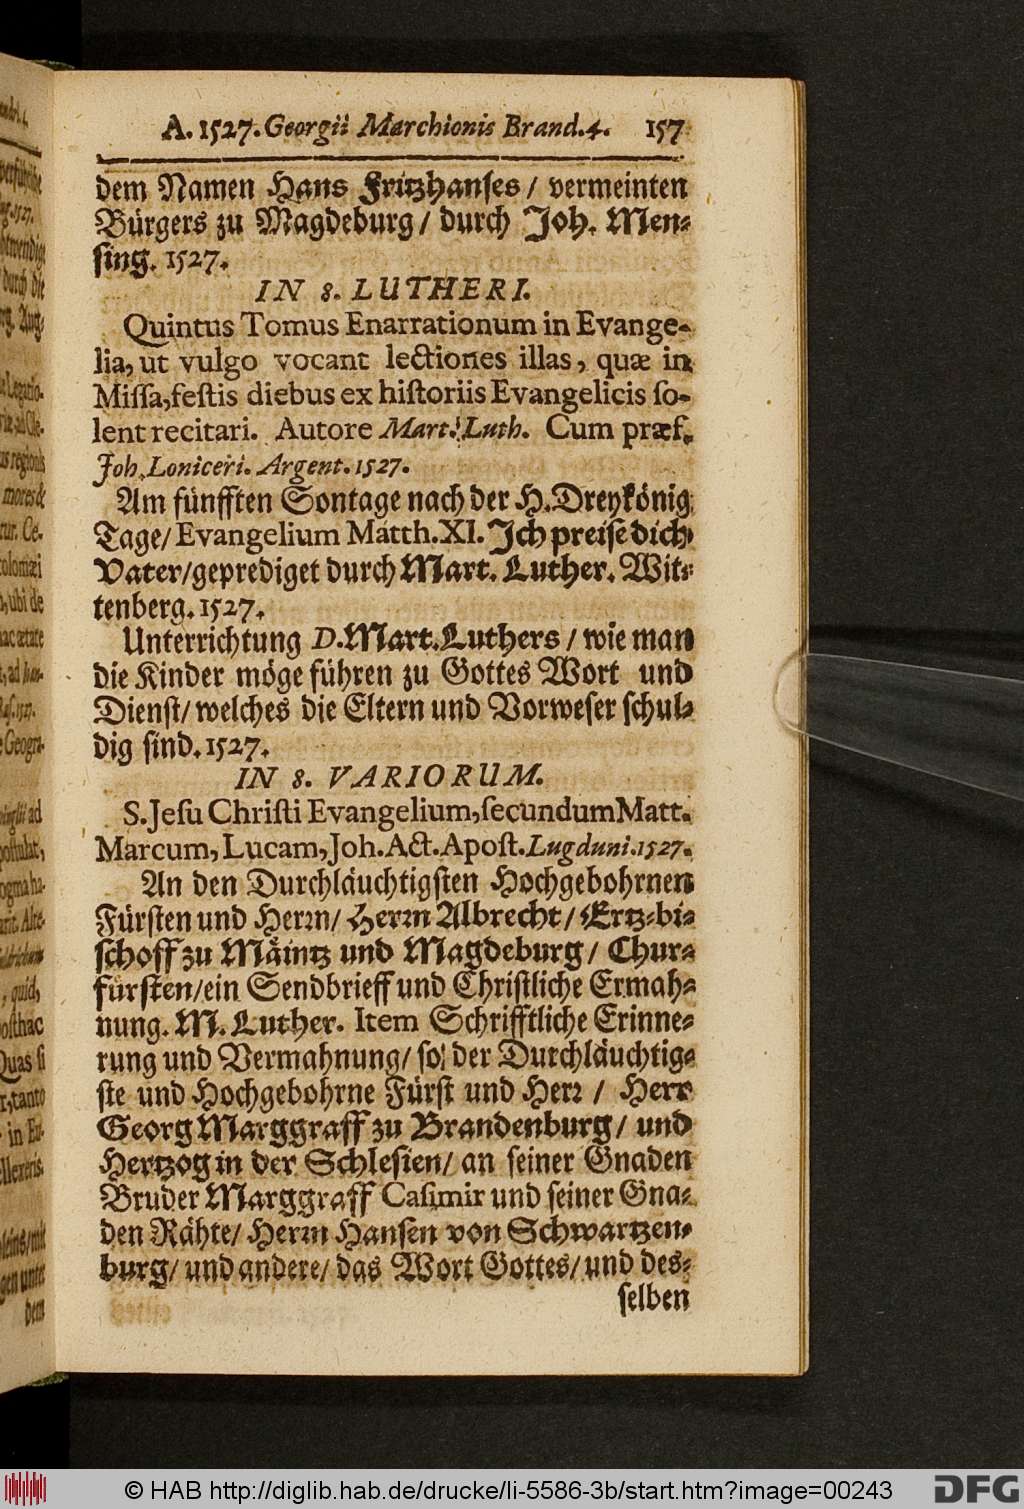 A. 1527. Georgii Marchionis Brand. 4. 157
dem Namen Hans Fritzhanses / vermeinten
Bürgers zu Magdeburg / durch Joh. Men-
sing. 1527.
IN 8. LUTHERI.
Quintus Tomus Enarrationum in Evange-
lia, ut vulgo vocant lectiones illas, quæ in
Missa, festis diebus ex historiis Evangelicis so-
lent recitari. Autore Mart. Luth. Cum præf.
Joh. Loniceri. Argent. 1527.
Am fünfften Sontage nach der H. Dreykönig
Tage / Evangelium Matth. XI. Ich preise dich
Vater / geprediget durch Mart. Luther. Wit-
tenberg. 1527.
Unterrichtung D. Mart. Luthers / wie man
die Kinder möge führen zu Gottes Wort und
Dienst / welches die Eltern und Vorweser schul-
dig sind. 1527.
IN 8. VARIORUM.
S. Jesu Christi Evangelium, secundum Matt.
Marcum, Lucam, Joh. Act. Apost. Lugduni. 1527.
An den Durchläuchtigsten Hochgebohrnen
Fürsten und Herrn / Herrn Albrecht / Ertz-bi-
schoff zu Mäintz und Magdeburg / Chur-
fürsten / ein Sendbrieff und Christliche Ermah-
nung. M. Luther. Item Schrifftliche Erinne-
rung und Vermahnung / so der Durchläuchtig-
ste und Hochgebohrne Fürst und Herr / Herr
Georg Marggraff zu Brandenburg / und
Hertzog in der Schlesien / an seiner Gnaden
Bruder Marggraff Casimir und seiner Gna-
den Rähte / Herrn Hansen von Schwartzen-
burg / und andere / das Wort Gottes / und des-
selben
© HAB http://diglib.hab.de/drucke/li-5586-3b/start.htm?image=00243
DFG